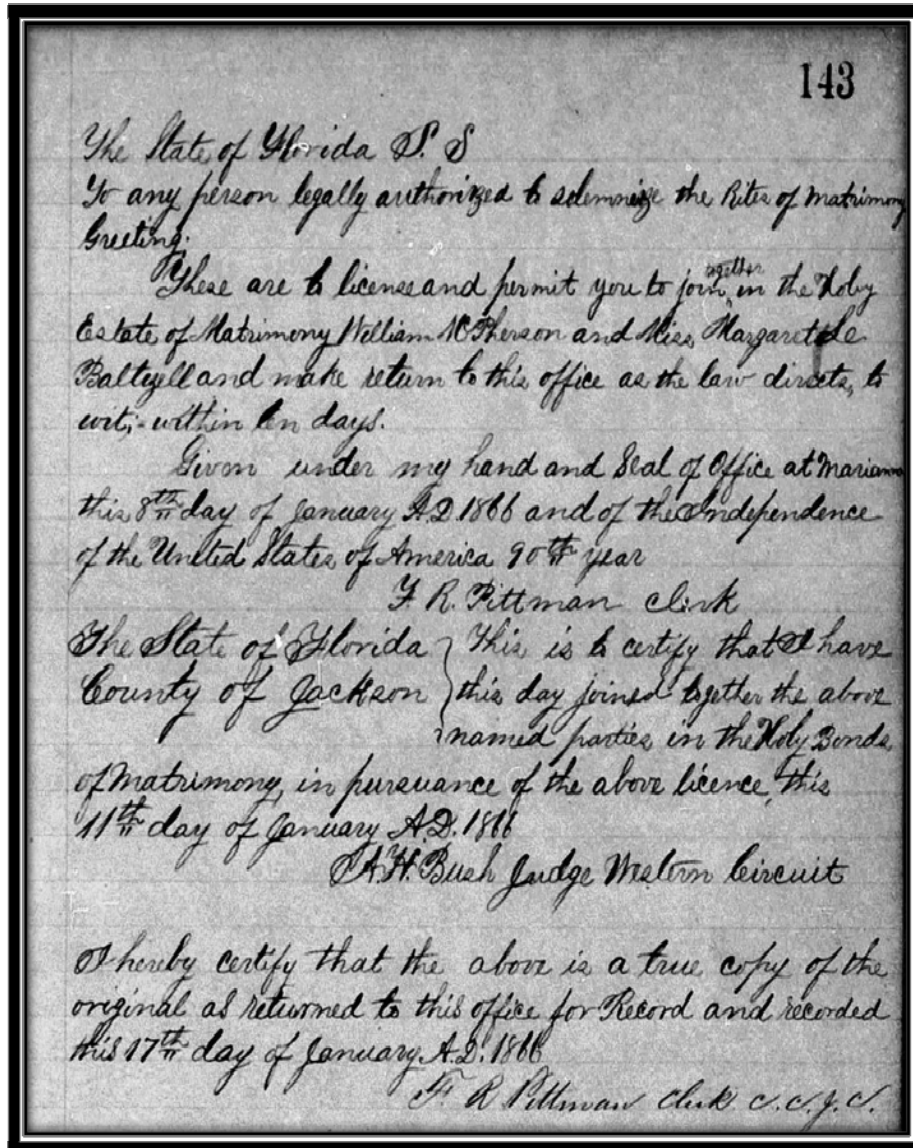 143
The State of Florida S. S
To any person legally authorized to solemnize the Rites of Matrimony
Greeting.
These are to license and permit you to join together in the Holy
Estate of Matrimony William McPherson and Miss Margaret
Baltzell and make return to this office as the law directs, to
wit;- within ten days.
Given under my hand and Seal of Office at Marianna
this 8th day of January A.D. 1866 and of the Independence
of the United States of America 90th year
F. R. Pittman Clerk
The State of Florida } This is to certify that I have
County of Jackson } this day joined together the above
named parties in the Holy Bonds
of Matrimony, in pursuance of the above licence, this
11th day of January A.D. 1866
A. H. Bush Judge Western Circuit
I hereby certify that the above is a true copy of the
original as returned to this office for Record and recorded
this 17th day of January A.D. 1866
F. R Pittman Clerk C. C. J. C.